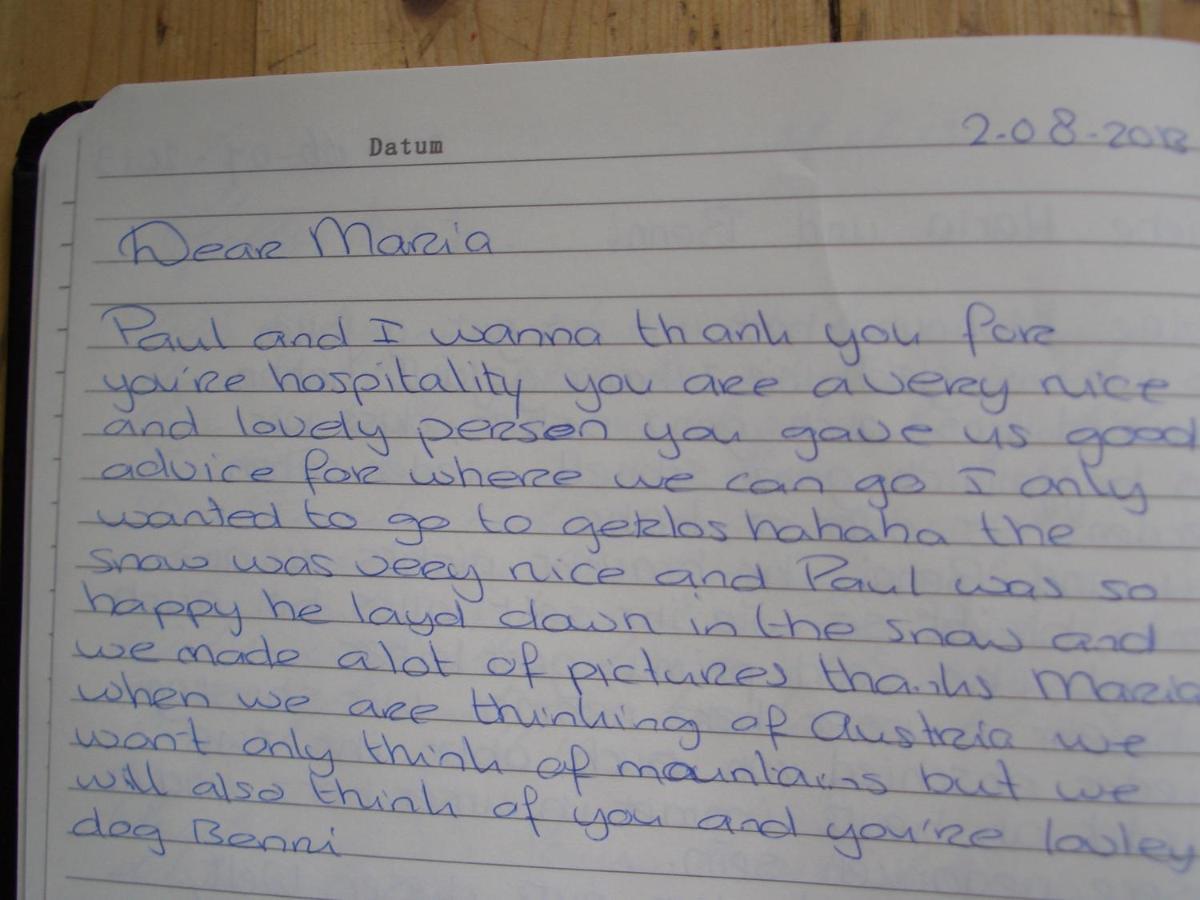 Datum
2-08-2013
Dear Maria
Paul and I wanna thank you for
you're hospitality you are a very nice
and lovely person you gave us good
advice for where we can go I only
wanted to go to gerlos hahaha the
snow was very nice and Paul was so
happy he layd down in the snow and
we made alot of pictures thanks Maria
when we are thinking of Austria we
won't only think of mountains but we
will also think of you and you're lovley
dog Benni